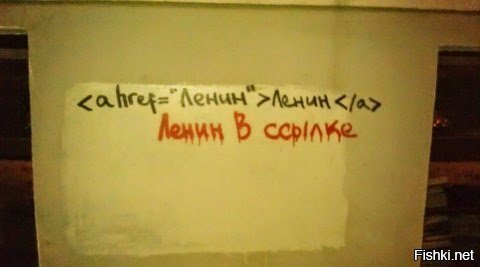 <a href="Ленин">Ленин</a>
Ленин в ссылке
Fishki.net